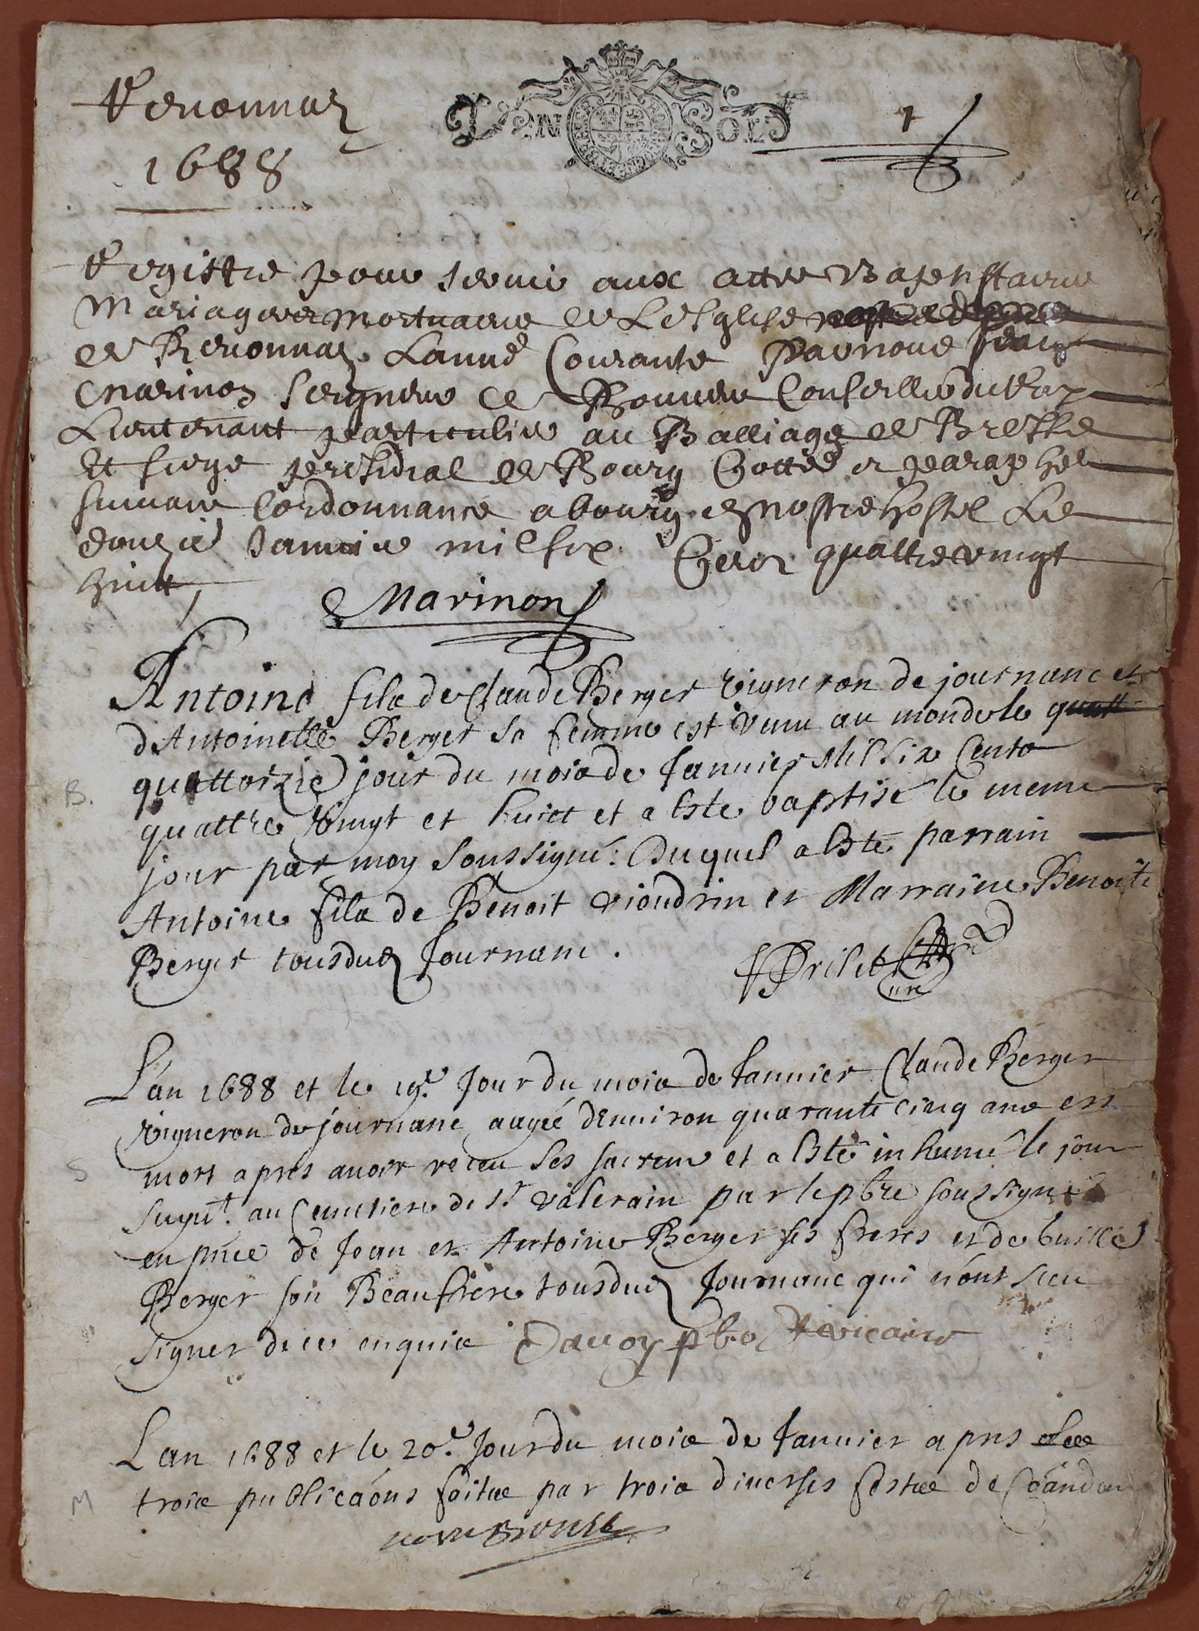 Reuonnaz
1688
UN SOL
1
Registre pour seruir aux actes Baptistaires
Mariages et Mortuaires de Lesglise
de Reuonnaz Lanneé Courante Par nous Jean
Marinon seigneur de Conseiller du Roy
Lieutenant particulier au Balliage de Bresse
Et siege presidial de Bourg Cotteé et parapheé
suiuant lordonnance a bourg en nostre hostel Le
douzie Januier mil six Cens quattre vingt
huict
Marinon
Antoine filx de Claude Berger vigneron de journanc et
d'Antoinette Berger sa femme est venu au monde le
B. quattorzie jour du mois de Januier Mil Six Cents
quattre vingt et huict et a esté baptisé le meme
jour par moy soussigné: Duquel a esté parrain
Antoine filx de Benoit viondrin et Marraine Benoite
Berger tous dud Journanc.
Curé
L'an 1688 et le 19e Jour du mois de Januier Claude Berger
vigneron de journanc aagée d'enuiron quarante cinq ans est
S mort apres auoir receu ses sacrem et a esté inhumé le jour
suyut. au Cemetiere de st valerain par le pbre soussigné
en pnce de Jean et Antoine Berger ses freres et de
Berger son Beaufrere tous dud Journanc qui n'ont sceu
signer de ce enquis Dauoy pbr vicaire
L'an 1688 et le 20e Jour du mois de Januier apres
M trois publicaons faites par trois diuerses festes de